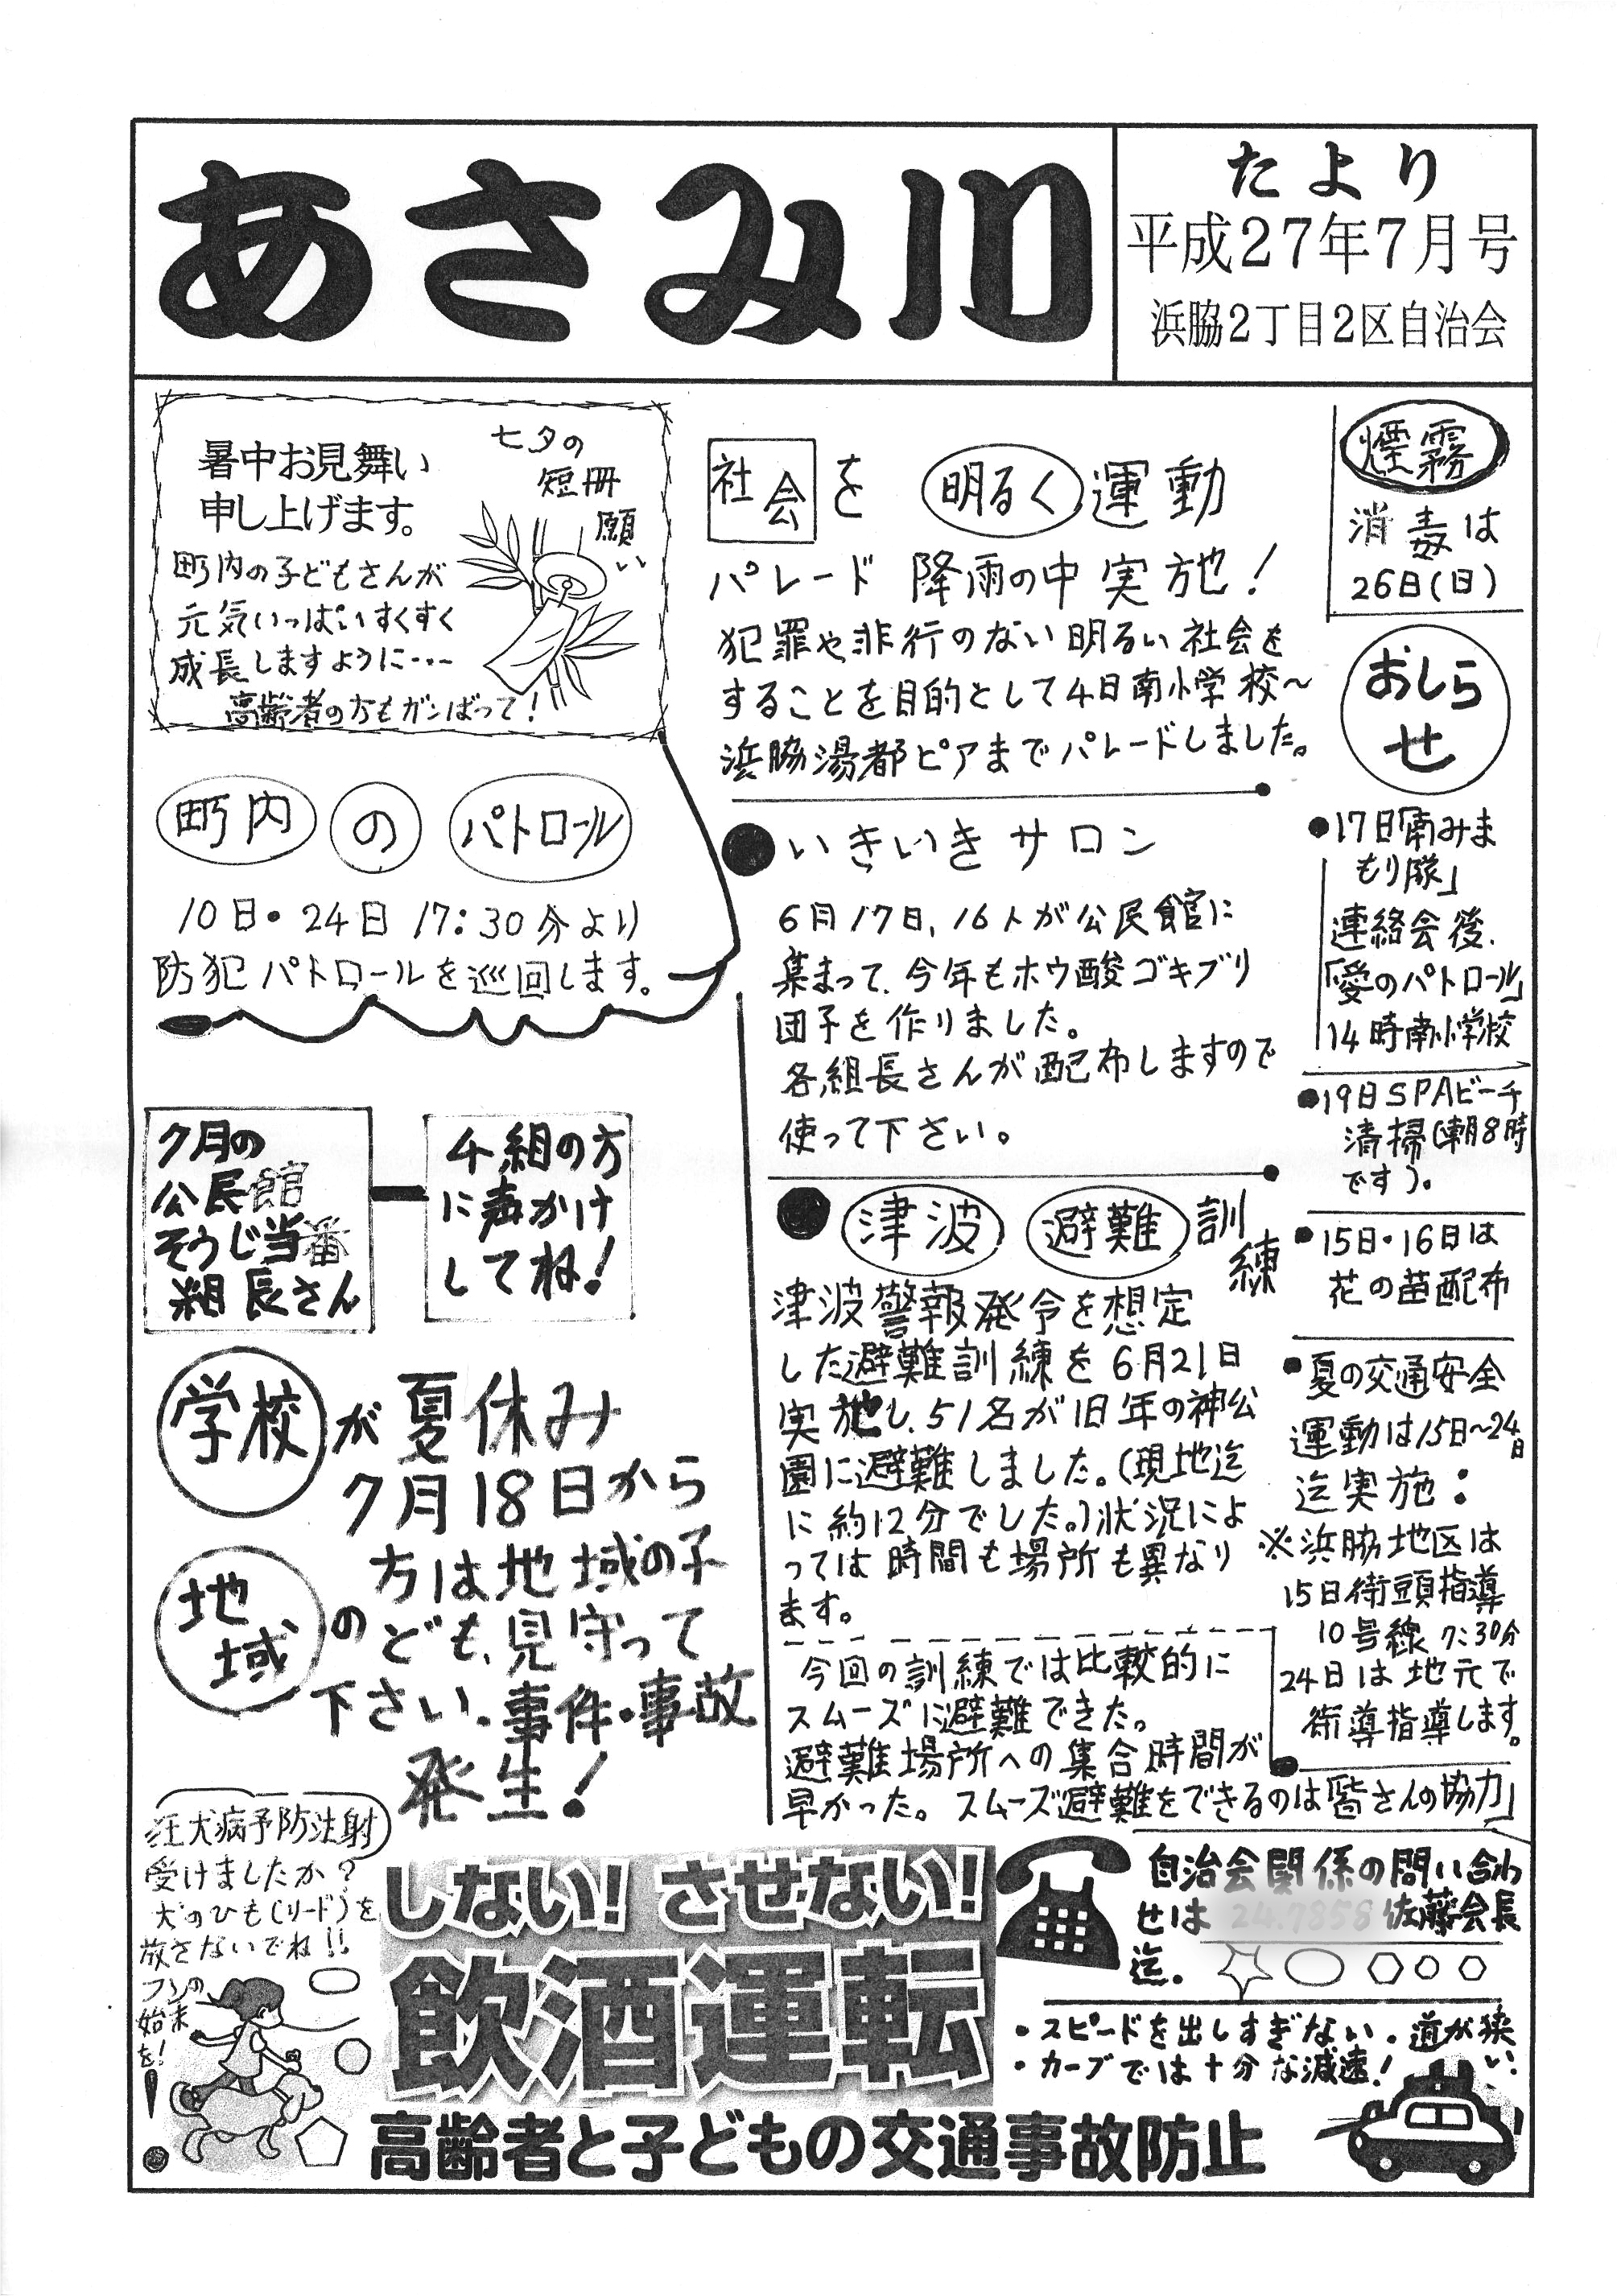 あさみ川
たより
平成27年7月号
浜脇2丁目2区自治会
暑中お見舞い
申し上げます。
町内の子どもさんが
元気いっぱいすくすく
成長しますように・・・
高齢者の方もガンばって!
七夕の
短冊
願い
町内のパトロール
10日・24日 17:30分より
防犯パトロールを巡回します。
7月の
公民館
そうじ当番
組長さん
4組の方
に声かけ
してね!
学校が夏休み
7月18日から
地域の
方は地域の子
ども、見守って
下さい.事件・事故
発生!
狂犬病予防注射
受けましたか?
犬のひも(リード)を
放さないでね!!
フンの
始末
を!
社会を明るく運動
パレード 降雨の中実施!
犯罪や非行のない明るい社会を
することを目的として4日南小学校〜
浜脇湯都ピアまでパレードしました。
●いきいきサロン
6月17日,16人が公民館に
集まって、今年もホウ酸ゴキブリ
団子を作りました。
各組長さんが配布しますので
使って下さい。
●津波避難訓練
津波警報発令を想定
した避難訓練を6月21日
実施し、51名が旧年の神公
園に避難しました。(現地迄
に約12分でした。)状況によ
っては時間も場所も異なり
ます。
今回の訓練では比較的に
スムーズに避難できた。
避難場所への集合時間が
早かった。スムーズ避難をできるのは「皆さんの協力」
煙霧
消毒は
26日(日)
おしらせ
●17日「南みま
もり隊」
連絡会後、
「愛のパトロール」
14時南小学校
●19日SPAビーチ
清掃(朝8時
です)。
●15日・16日は
花の苗配布
●夏の交通安全
運動は15日〜24日
迄実施:
※浜脇地区は
15日街頭指導
10号線 7:30分
24日は地元で
街導指導します。
しない!させない!
飲酒運転
高齢者と子どもの交通事故防止
自治会関係の問い合わ
せは 佐藤会長
迄。
・スピードを出しすぎない.道が狭い.
・カーブでは十分な減速!